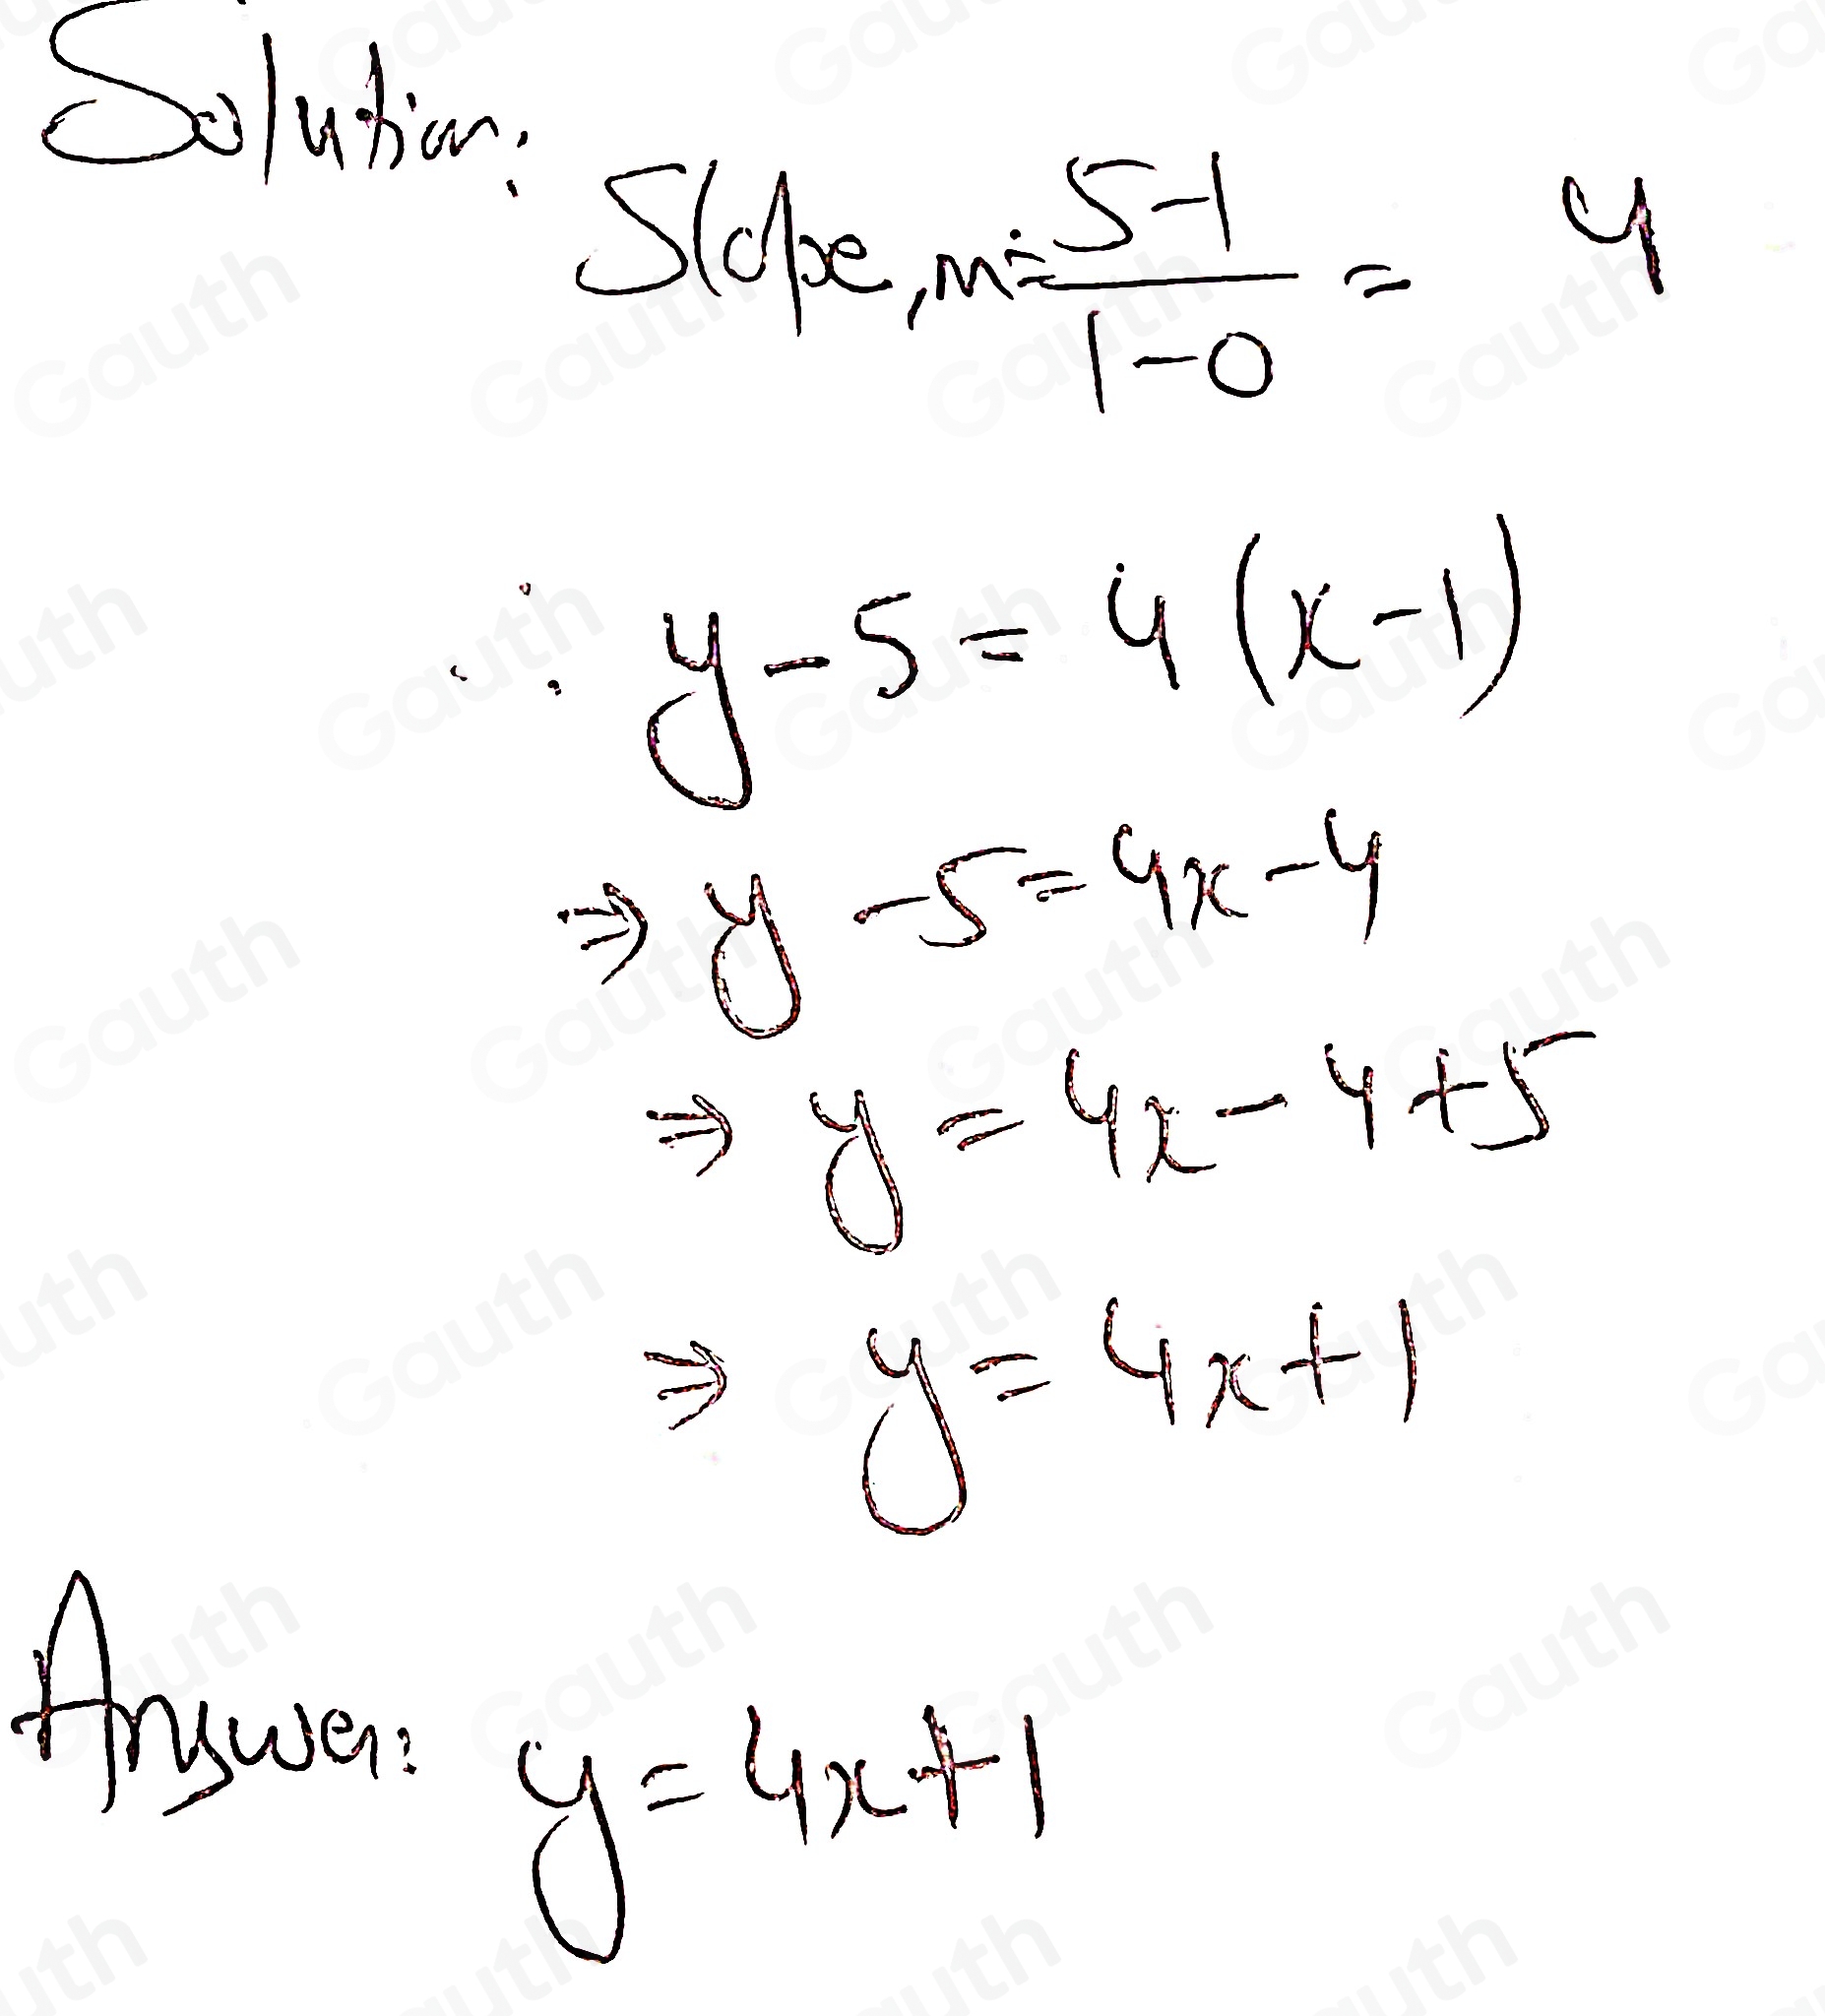 Solution:
Slope, m = \frac{5-1}{1-0} = 4
∴ y - 5 = 4 (x - 1)
⇒ y - 5 = 4x - 4
⇒ y = 4x - 4 + 5
⇒ y = 4x + 1
Answer: y = 4x + 1